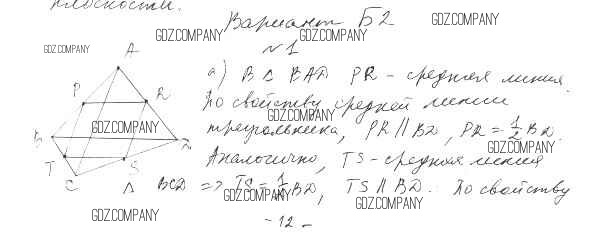 плоскости.
Вариант Б2
GDZ.COMPANY
GDZ.COMPANY
GDZ.COMPANY
№1
GDZ.COMPANY
A
а) В △ BAD PR - средняя линия.
P
R
По свойству средней линии
GDZ.COMPANY
GDZ.COMPANY
B
треугольника, PR || BD, PR = 1/2 BD.
D
GDZ.COMPANY
T
S
Аналогично, TS - средняя линия
C
△ BCD => TS = 1/2 BD, TS || BD. По свойству
GDZ.COMPANY
GDZ.COMPANY
GDZ.COMPANY
- 12 -